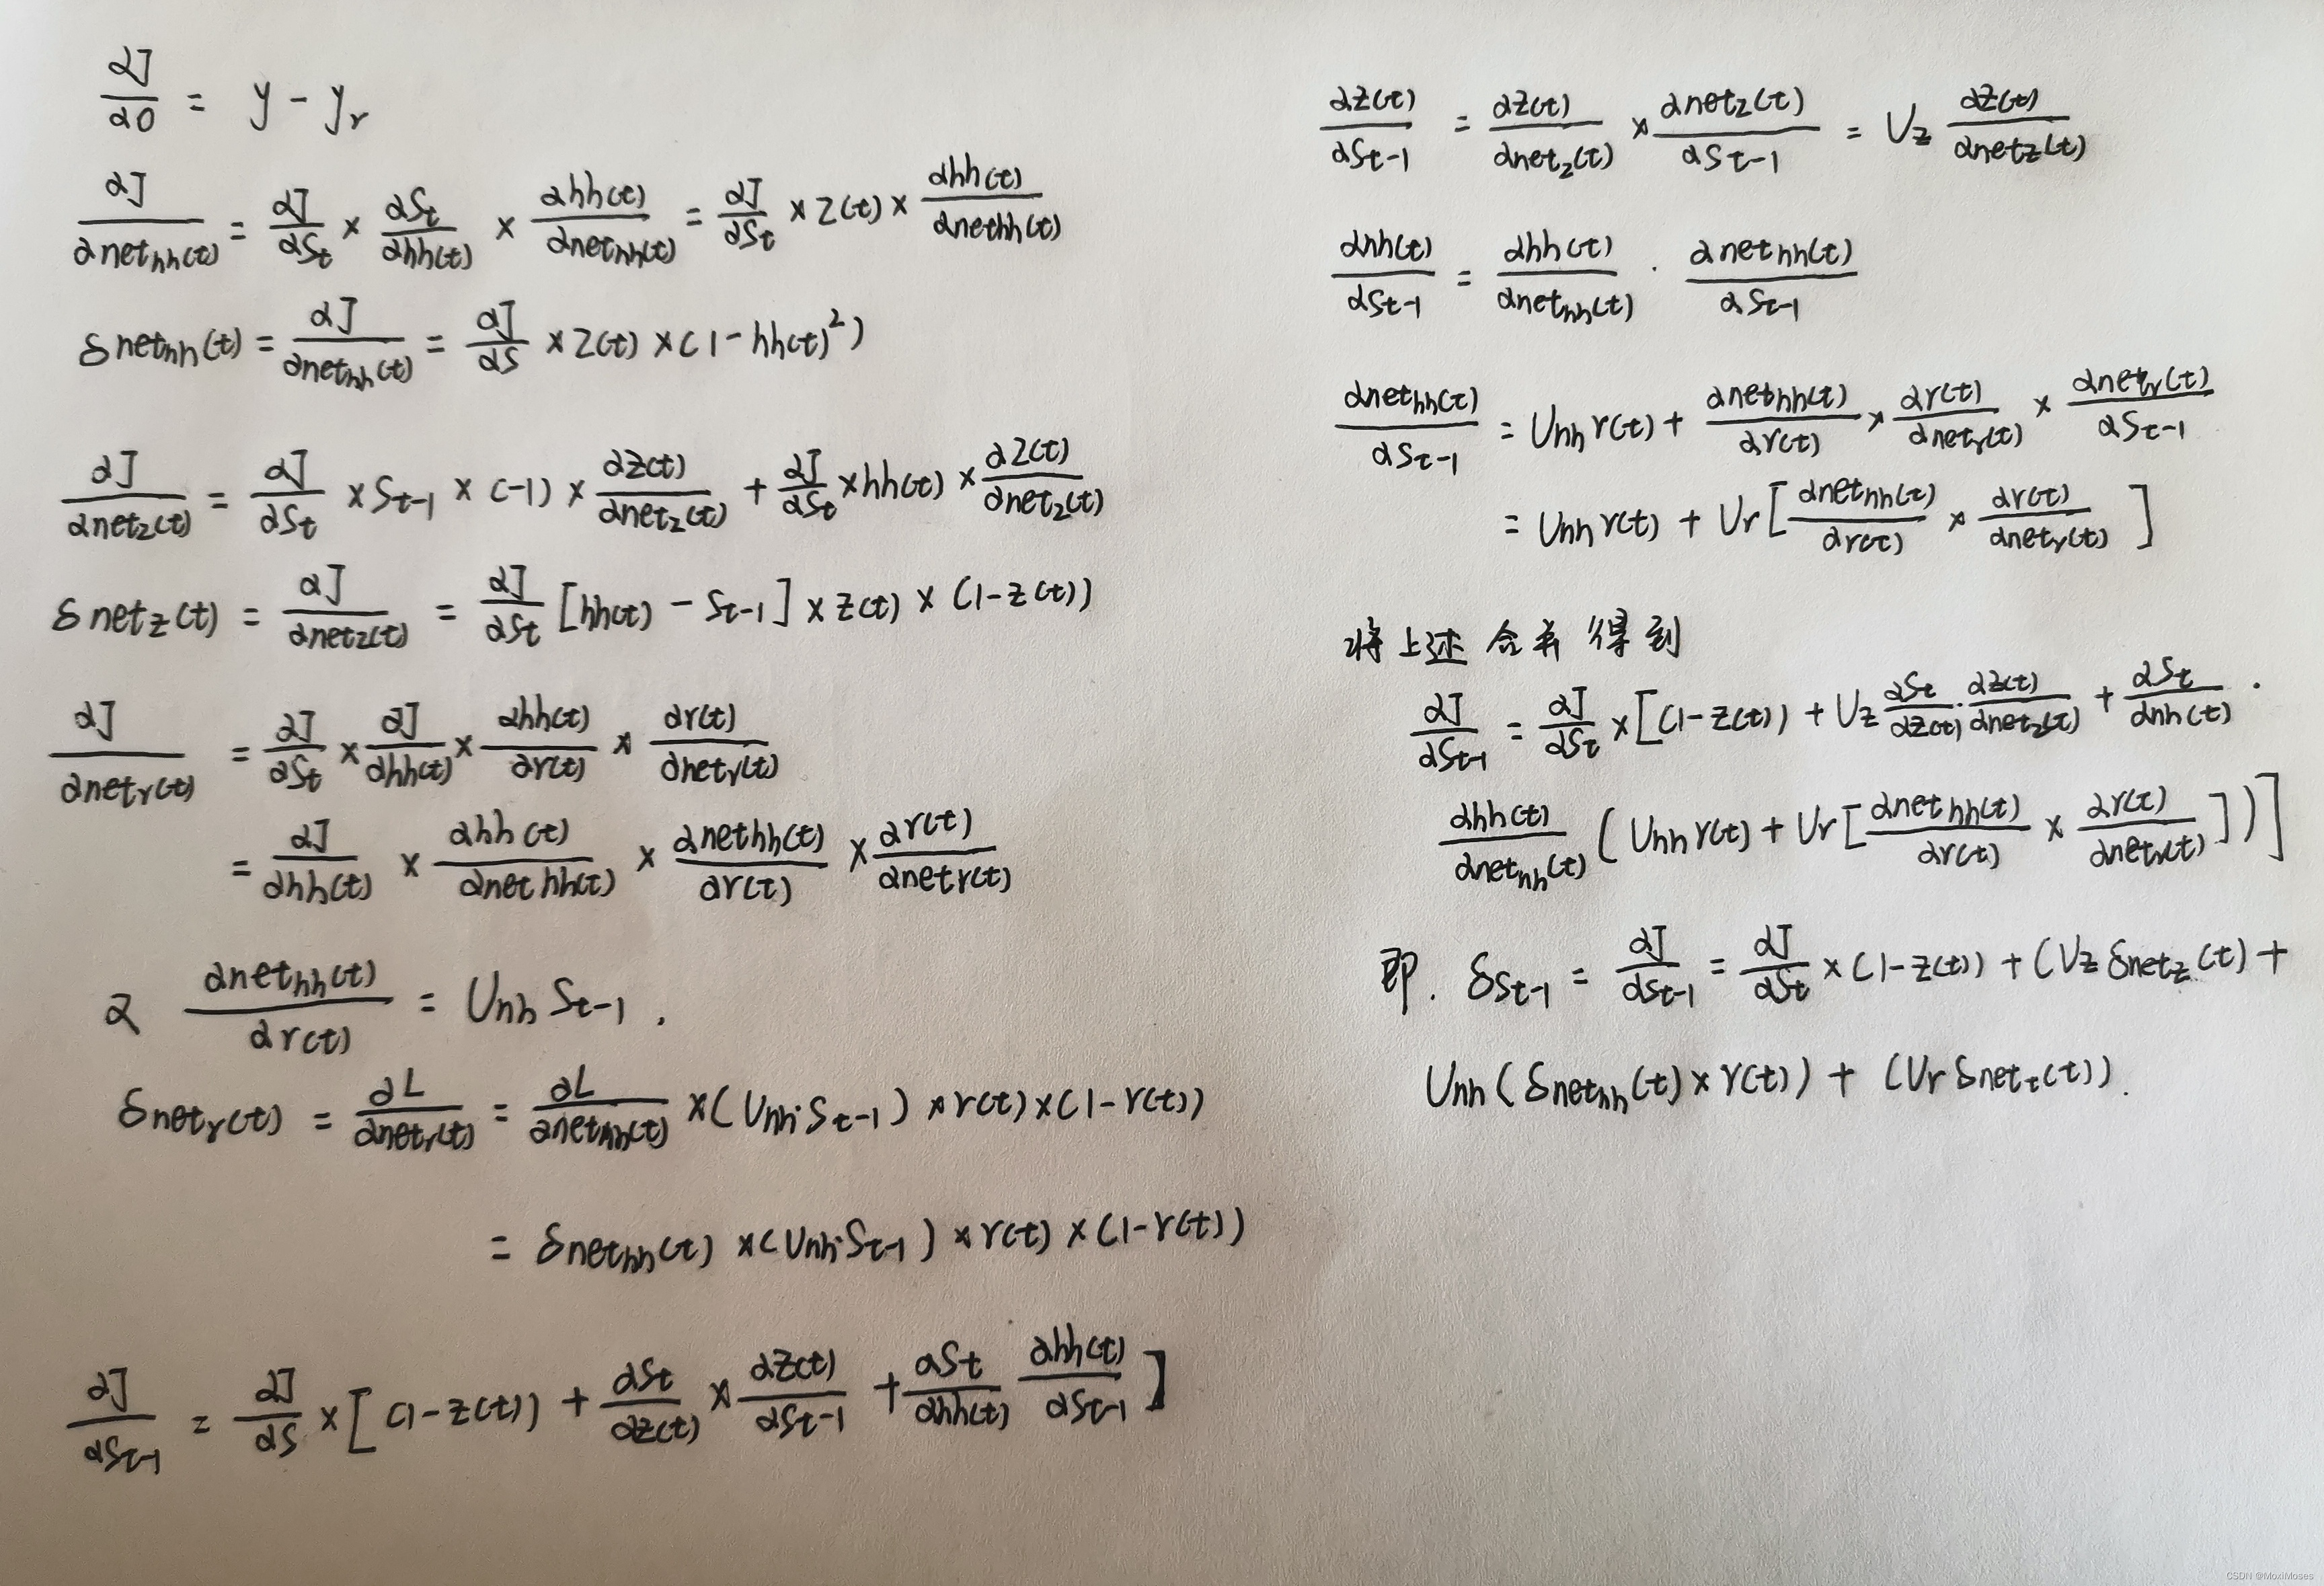 ∂J/∂O = y - yr
∂J/∂net_hh(t) = ∂J/∂S_t × ∂S_t/∂hh(t) × ∂hh(t)/∂net_hh(t) = ∂J/∂S_t × Z(t) × ∂hh(t)/∂nethh(t)
δnet_hh(t) = ∂J/∂net_hh(t) = ∂J/∂S × Z(t) × (1 - hh(t)²)
∂J/∂net_z(t) = ∂J/∂S_t × S_t-1 × (-1) × ∂Z(t)/∂net_z(t) + ∂J/∂S_t × hh(t) × ∂Z(t)/∂net_z(t)
δnet_z(t) = ∂J/∂net_z(t) = ∂J/∂S_t [hh(t) - S_t-1] × z(t) × (1-z(t))
∂J/∂net_r(t) = ∂J/∂S_t × ∂J/∂hh(t) × ∂hh(t)/∂r(t) × ∂r(t)/∂net_r(t)
= ∂J/∂hh(t) × ∂hh(t)/∂net hh(t) × ∂nethh(t)/∂r(t) × ∂r(t)/∂net_r(t)
∂ ∂net_hh(t)/∂r(t) = U_hh S_t-1 .
δnet_r(t) = ∂L/∂net_r(t) = ∂L/∂net_hh(t) × (U_hh·S_t-1) × r(t) × (1-r(t))
= δnet_hh(t) × (U_hh·S_t-1) × r(t) × (1-r(t))
∂J/∂S_t-1 = ∂J/∂S × [(1-z(t)) + ∂S_t/∂z(t) × ∂Z(t)/∂S_t-1 + ∂S_t/∂hh(t) ∂hh(t)/∂S_t-1]
∂Z(t)/∂S_t-1 = ∂Z(t)/∂net_z(t) × ∂net_z(t)/∂S_t-1 = U_z ∂Z(t)/∂net_z(t)
∂hh(t)/∂S_t-1 = ∂hh(t)/∂net_hh(t) · ∂net_hh(t)/∂S_t-1
∂net_hh(t)/∂S_t-1 = U_hh r(t) + ∂net_hh(t)/∂r(t) × ∂r(t)/∂net_r(t) × ∂net_r(t)/∂S_t-1
= U_hh r(t) + U_r [∂net_hh(t)/∂r(t) × ∂r(t)/∂net_r(t)]
将上述合并得到
∂J/∂S_t-1 = ∂J/∂S_t × [(1-z(t)) + U_z ∂S_t/∂z(t) · ∂z(t)/∂net_z(t) + ∂S_t/∂hh(t) ·
∂hh(t)/∂net_hh(t) (U_hh r(t) + U_r [∂net_hh(t)/∂r(t) × ∂r(t)/∂net_r(t)])]
即. δS_t-1 = ∂J/∂S_t-1 = ∂J/∂S_t × (1-z(t)) + (U_z δnet_z(t) +
U_hh (δnet_hh(t) × r(t)) + (U_r δnet_t(t)).
CSDN @MoxiMoses